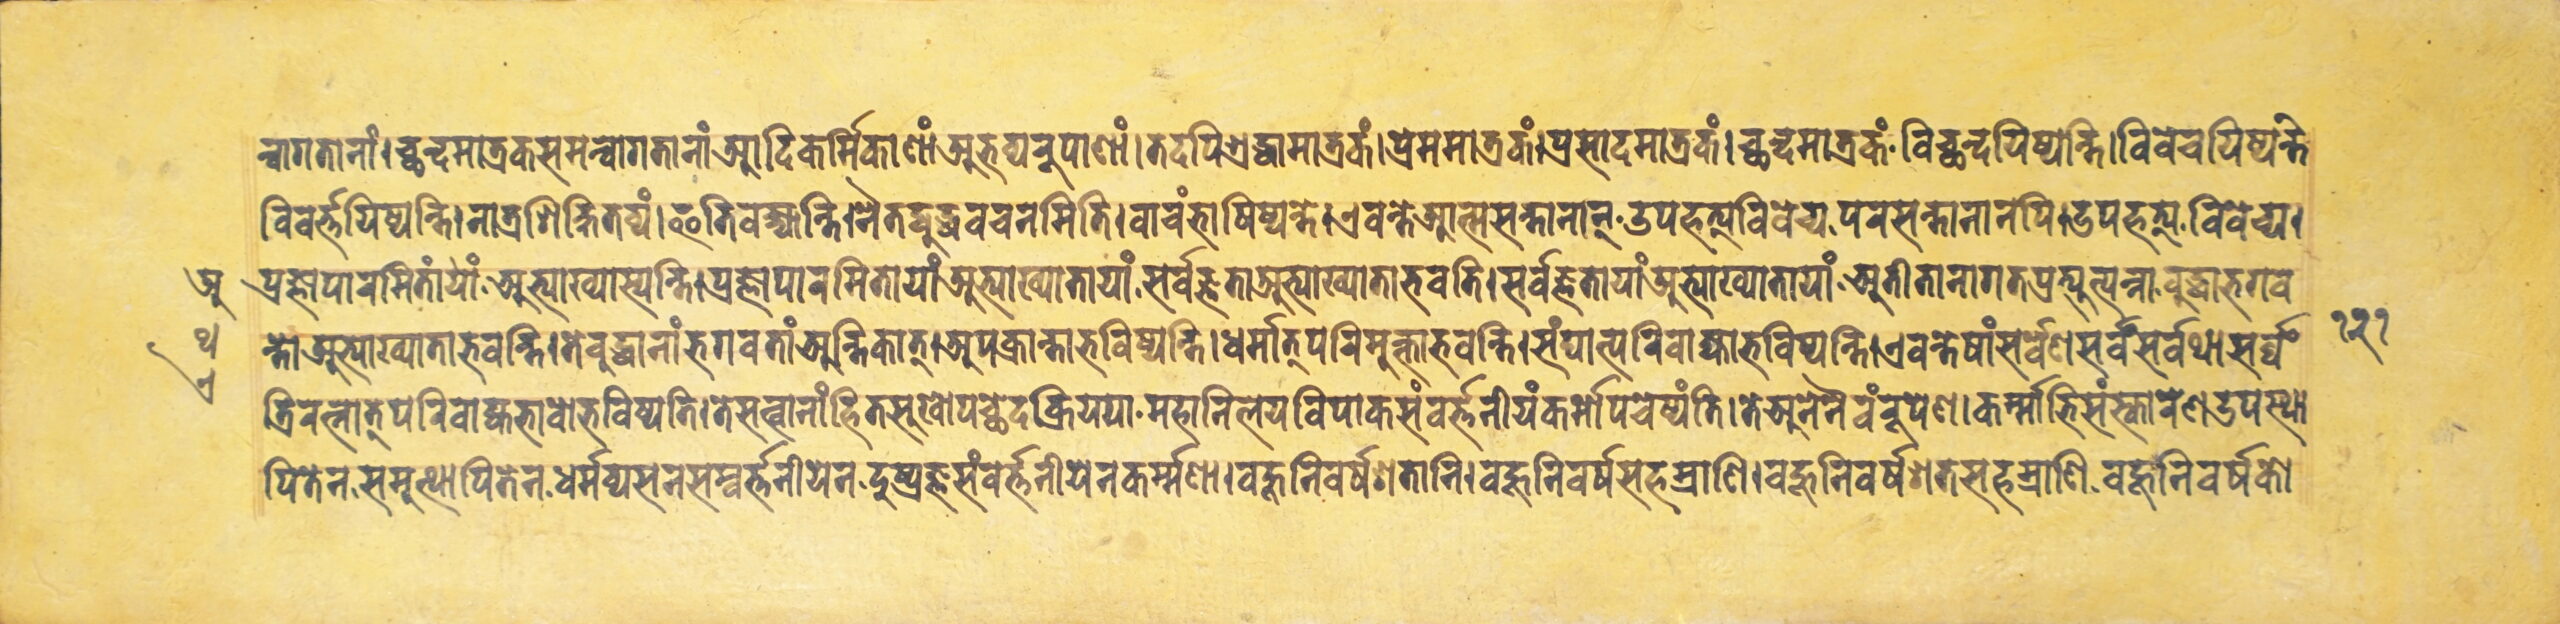 न्वागतानां।च्छन्दमात्रकसमन्वागतानांआदिकर्मिकाणांअभव्यरूपाणां।तदपिश्रद्धामात्रकं।प्रेममात्रकं।प्रसादमात्रकं।च्छन्दमात्रकं.विच्छन्दयिष्यन्ति।विवेचयिष्यन्ति
विवर्त्तयिष्यन्ति।नात्रशिक्षितव्यं।इतिवक्ष्यन्ति।नैतद्बुद्धवचनमिति।वाचंभाषिष्यन्ते।एवन्तेआत्मसन्तानान्.उपहत्यविवेच्य.परसन्तानानपि।उपहत्य.विवेच्य।
प्रज्ञापारमितायां.अभ्याख्यास्यन्ति।प्रज्ञापारमितायांअभ्याख्यातायां.सर्वज्ञताअभ्याख्याताभवति।सर्वज्ञतायांअभ्याख्यातायां.अतीतानागतप्रत्युत्पन्ना.बुद्धाभगव
न्तोअभ्याख्याताभवन्ति।तेबुद्धानांभगवतांअन्तिकात्।अपक्रान्ताभविष्यन्ति।धर्मात्परिमुक्ताभवन्ति।संघात्परिबाह्याभविष्यन्ति।एवन्तेषांसर्वेणसर्वंसर्वथासर्व्वं
त्रिरत्नात्परिबाह्यभावोभविष्यति।तेसत्वानांहितसुखोपच्छेदक्रियया.महानिलयविपाकसंवर्त्तनीयंकर्मोपचेष्यंति।तेअनेनैवंरूपेण।कर्म्माभिसंस्कारेणउपस्था
पितेन.समुत्थापितेन.धर्मव्यसनसम्वर्त्तनीयेन.दुष्प्रज्ञसंवर्त्तनीयेनकर्म्मणा।बहूनिवर्षशतानि।बहूनिवर्षसहस्राणि।बहूनिवर्षशतसहस्राणि.बहूनिवर्षको
अ
१२१